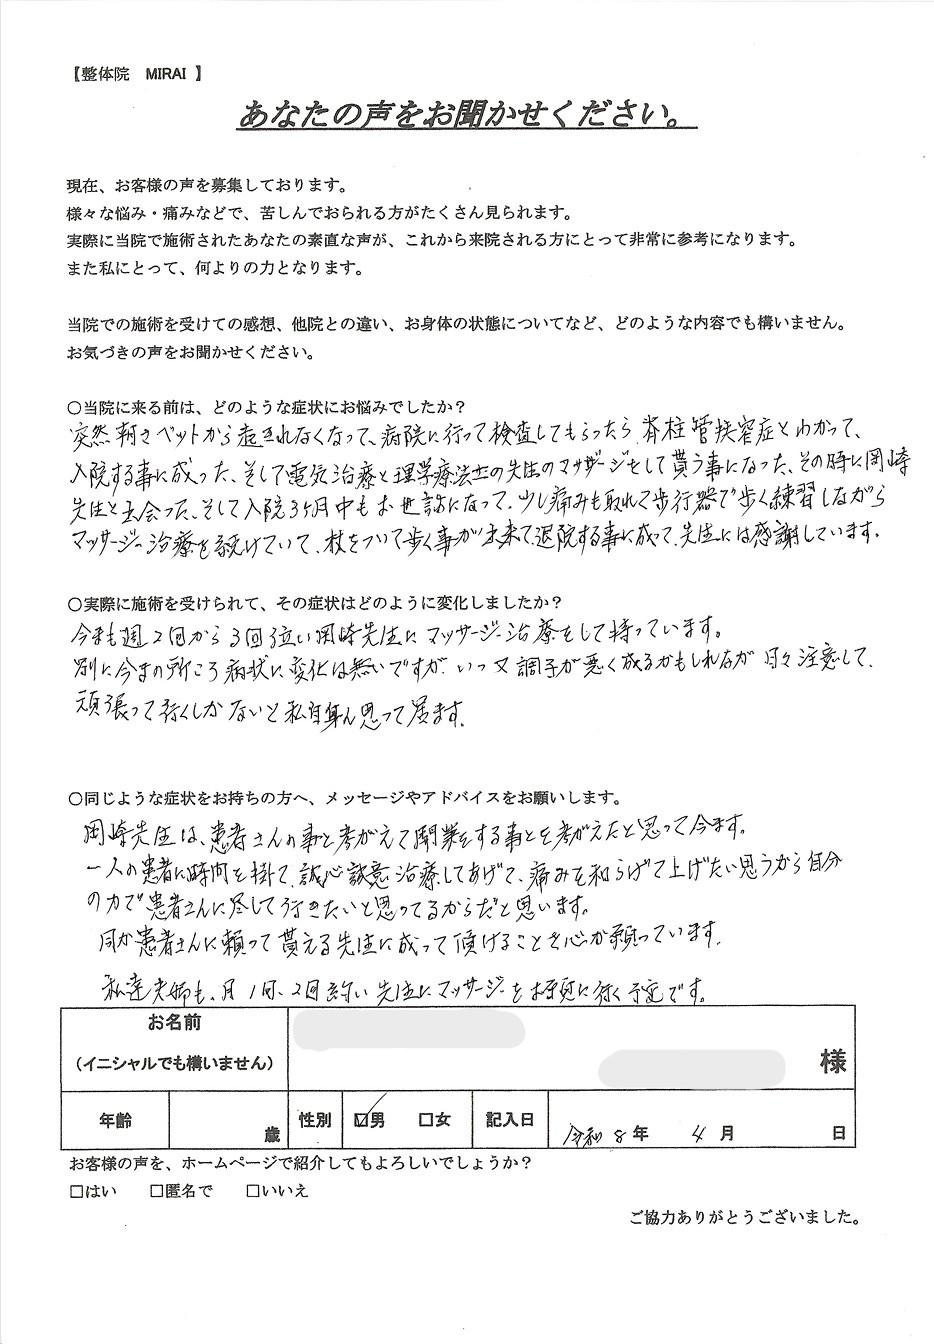 【整体院　MIRAI 】
あなたの声をお聞かせください。
現在、お客様の声を募集しております。
様々な悩み・痛みなどで、苦しんでおられる方がたくさん見られます。
実際に当院で施術されたあなたの素直な声が、これから来院される方にとって非常に参考になります。
また私にとって、何よりの力となります。
当院での施術を受けての感想、他院との違い、お身体の状態についてなど、どのような内容でも構いません。
お気づきの声をお聞かせください。
○当院に来る前は、どのような症状にお悩みでしたか？
突然朝さベットから起きれなくなって、病院に行って検査してもらったら 脊柱管狭窄症とわかって、
入院する事に成った、そして電気治療と理学療法士の先生のマッサージをして貰う事になった、その時に岡崎
先生と出会った、そして入院3ヶ月中もお世話になって、少し痛みも取れて歩行器で歩く練習しながら
マッサージ治療を続けていて、杖をついて歩く事が出来て退院する事に成って、先生には感謝しています。
○実際に施術を受けられて、その症状はどのように変化しましたか？
今も週2回から3回位い岡崎先生にマッサージ治療をして持っています。
別に今の所ころ病状に変化は無いですが、いつ又調子が悪く成るかもしれなが 日々注意して、
頑張って行くしかないと私自身ん思って居ます。
○同じような症状をお持ちの方へ、メッセージやアドバイスをお願いします。
岡崎先生は、患者さんの事と考がえて開業をする事とを考がえたと思って今ます。
一人の患者に時間を掛て、誠心誠意治療してあげて、痛みを和らげて上げたい思うから自分
の力で患者さんに尽して行きたいと思ってるからだと思います。
何か患者さんに頼って貰える先生に成って頂けることを心か願っています。
私達夫婦も、月1回、2回約い先生にマッサージをお願に行く予定です。
お名前
（イニシャルでも構いません）
様
年齢　歳　性別　☑男　□女　記入日　令和8年　4月　日
お客様の声を、ホームページで紹介してもよろしいでしょうか？
□はい　□匿名で　□いいえ
ご協力ありがとうございました。